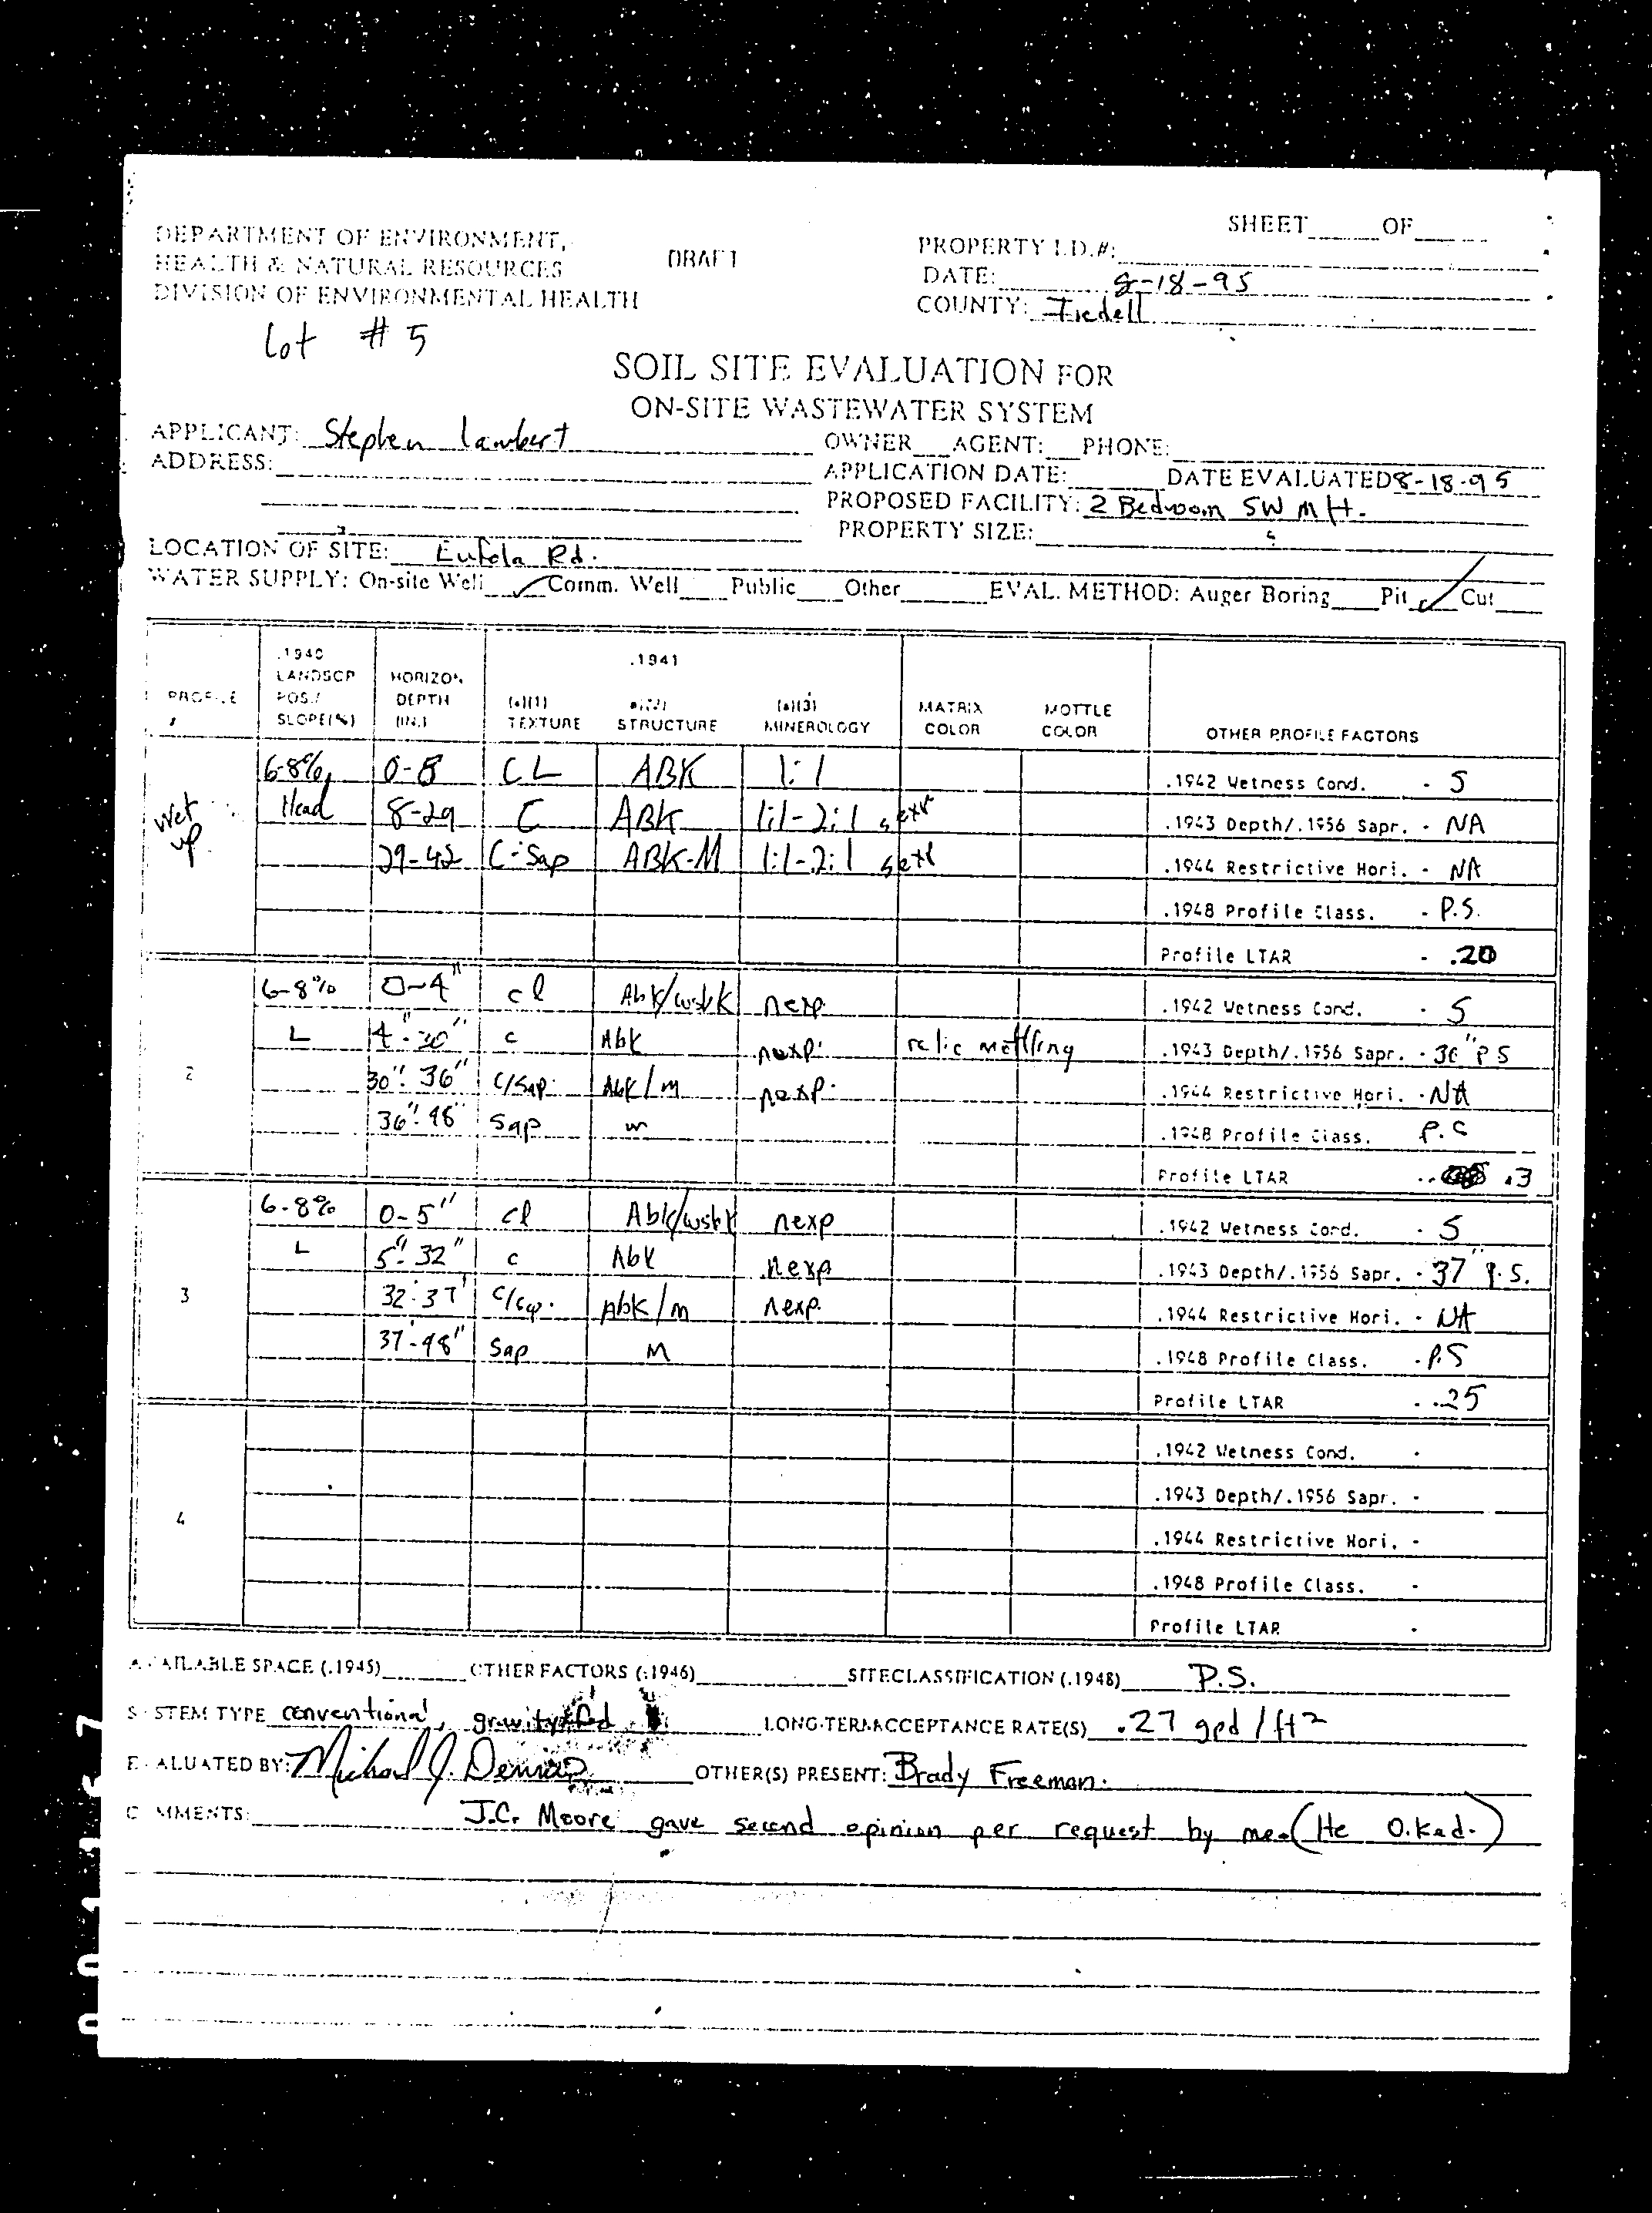 SHEET ____ OF ____
DEPARTMENT OF ENVIRONMENT,
HEALTH & NATURAL RESOURCES
DIVISION OF ENVIRONMENTAL HEALTH
DRAFT
PROPERTY I.D.#:
DATE: 8-18-95
COUNTY: Iredell
Lot # 5
SOIL SITE EVALUATION FOR
ON-SITE WASTEWATER SYSTEM
APPLICANT: Stephen Lambert
OWNER AGENT: PHONE:
ADDRESS:
APPLICATION DATE: DATE EVALUATED 8-18-95
PROPOSED FACILITY: 2 Bedroom SW MH.
PROPERTY SIZE:
LOCATION OF SITE: Eufola Rd.
WATER SUPPLY: On-site Well ✓ Comm. Well Public Other EVAL. METHOD: Auger Boring Pit ✓ Cut
PROFILE # .1940 LANDSCP POS./ SLOPE(%) HORIZON DEPTH (IN.) .1941 (a)(1) TEXTURE a(2) STRUCTURE (a)(3) MINEROLOGY MATRIX COLOR MOTTLE COLOR OTHER PROFILE FACTORS
6-8% 0-8 CL ABK 1:1 .1942 Wetness Cond. - S
Wet up Head 8-29 C ABK 1:1-2:1 sexp .1943 Depth/.1956 Sapr. - NA
29-42 C-Sap ABK-M 1:1-2:1 sexp .1944 Restrictive Hori. - NA
.1948 Profile Class. - P.S.
Profile LTAR - .20
6-8% 0-4" cl Abk/wsbk nexp. .1942 Wetness Cond. - S
L 4"-30" c Abk nexp. relic mottling .1943 Depth/.1956 Sapr. - 36" PS
2 30"-36" C/Sap. Abk/m nexp. .1944 Restrictive Hori. - NA
36"-48" Sap m .1948 Profile Class. P.S
Profile LTAR - .3
6-8% 0-5" cl Abk/wsbk nexp .1942 Wetness Cond. - S
L 5"-32" c Abk nexp .1943 Depth/.1956 Sapr. - 37" P.S.
3 32-37" C/Sap. Abk/m nexp. .1944 Restrictive Hori. - NA
37-48" Sap M .1948 Profile Class. - P.S
Profile LTAR - .25
.1942 Wetness Cond. -
.1943 Depth/.1956 Sapr. -
4 .1944 Restrictive Hori. -
.1948 Profile Class. -
Profile LTAR -
AVAILABLE SPACE (.1945) OTHER FACTORS (.1946) SITE CLASSIFICATION (.1948) P.S.
SYSTEM TYPE conventional, gravity fed LONG-TERM ACCEPTANCE RATE(S) .27 gpd/ft2
EVALUATED BY: Michael J. OTHER(S) PRESENT: Brady Freeman.
COMMENTS: J.C. Moore gave second opinion per request by me. (He O.Ked.)